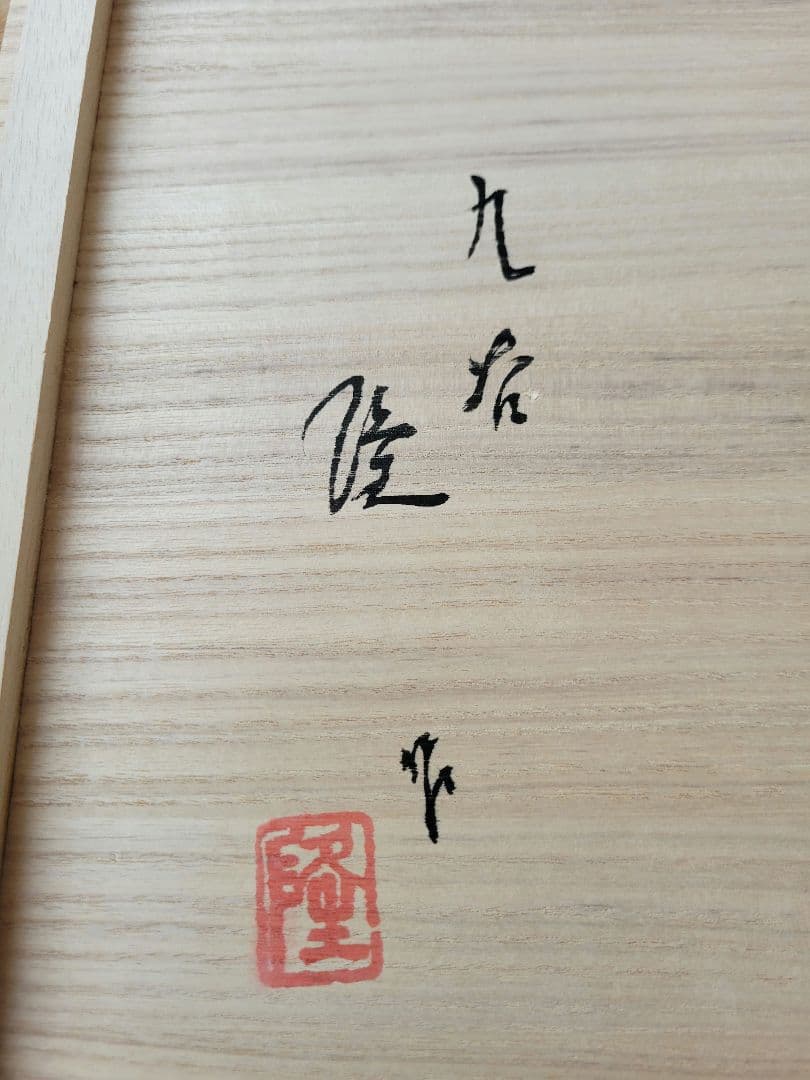 九谷
隆 作
隆